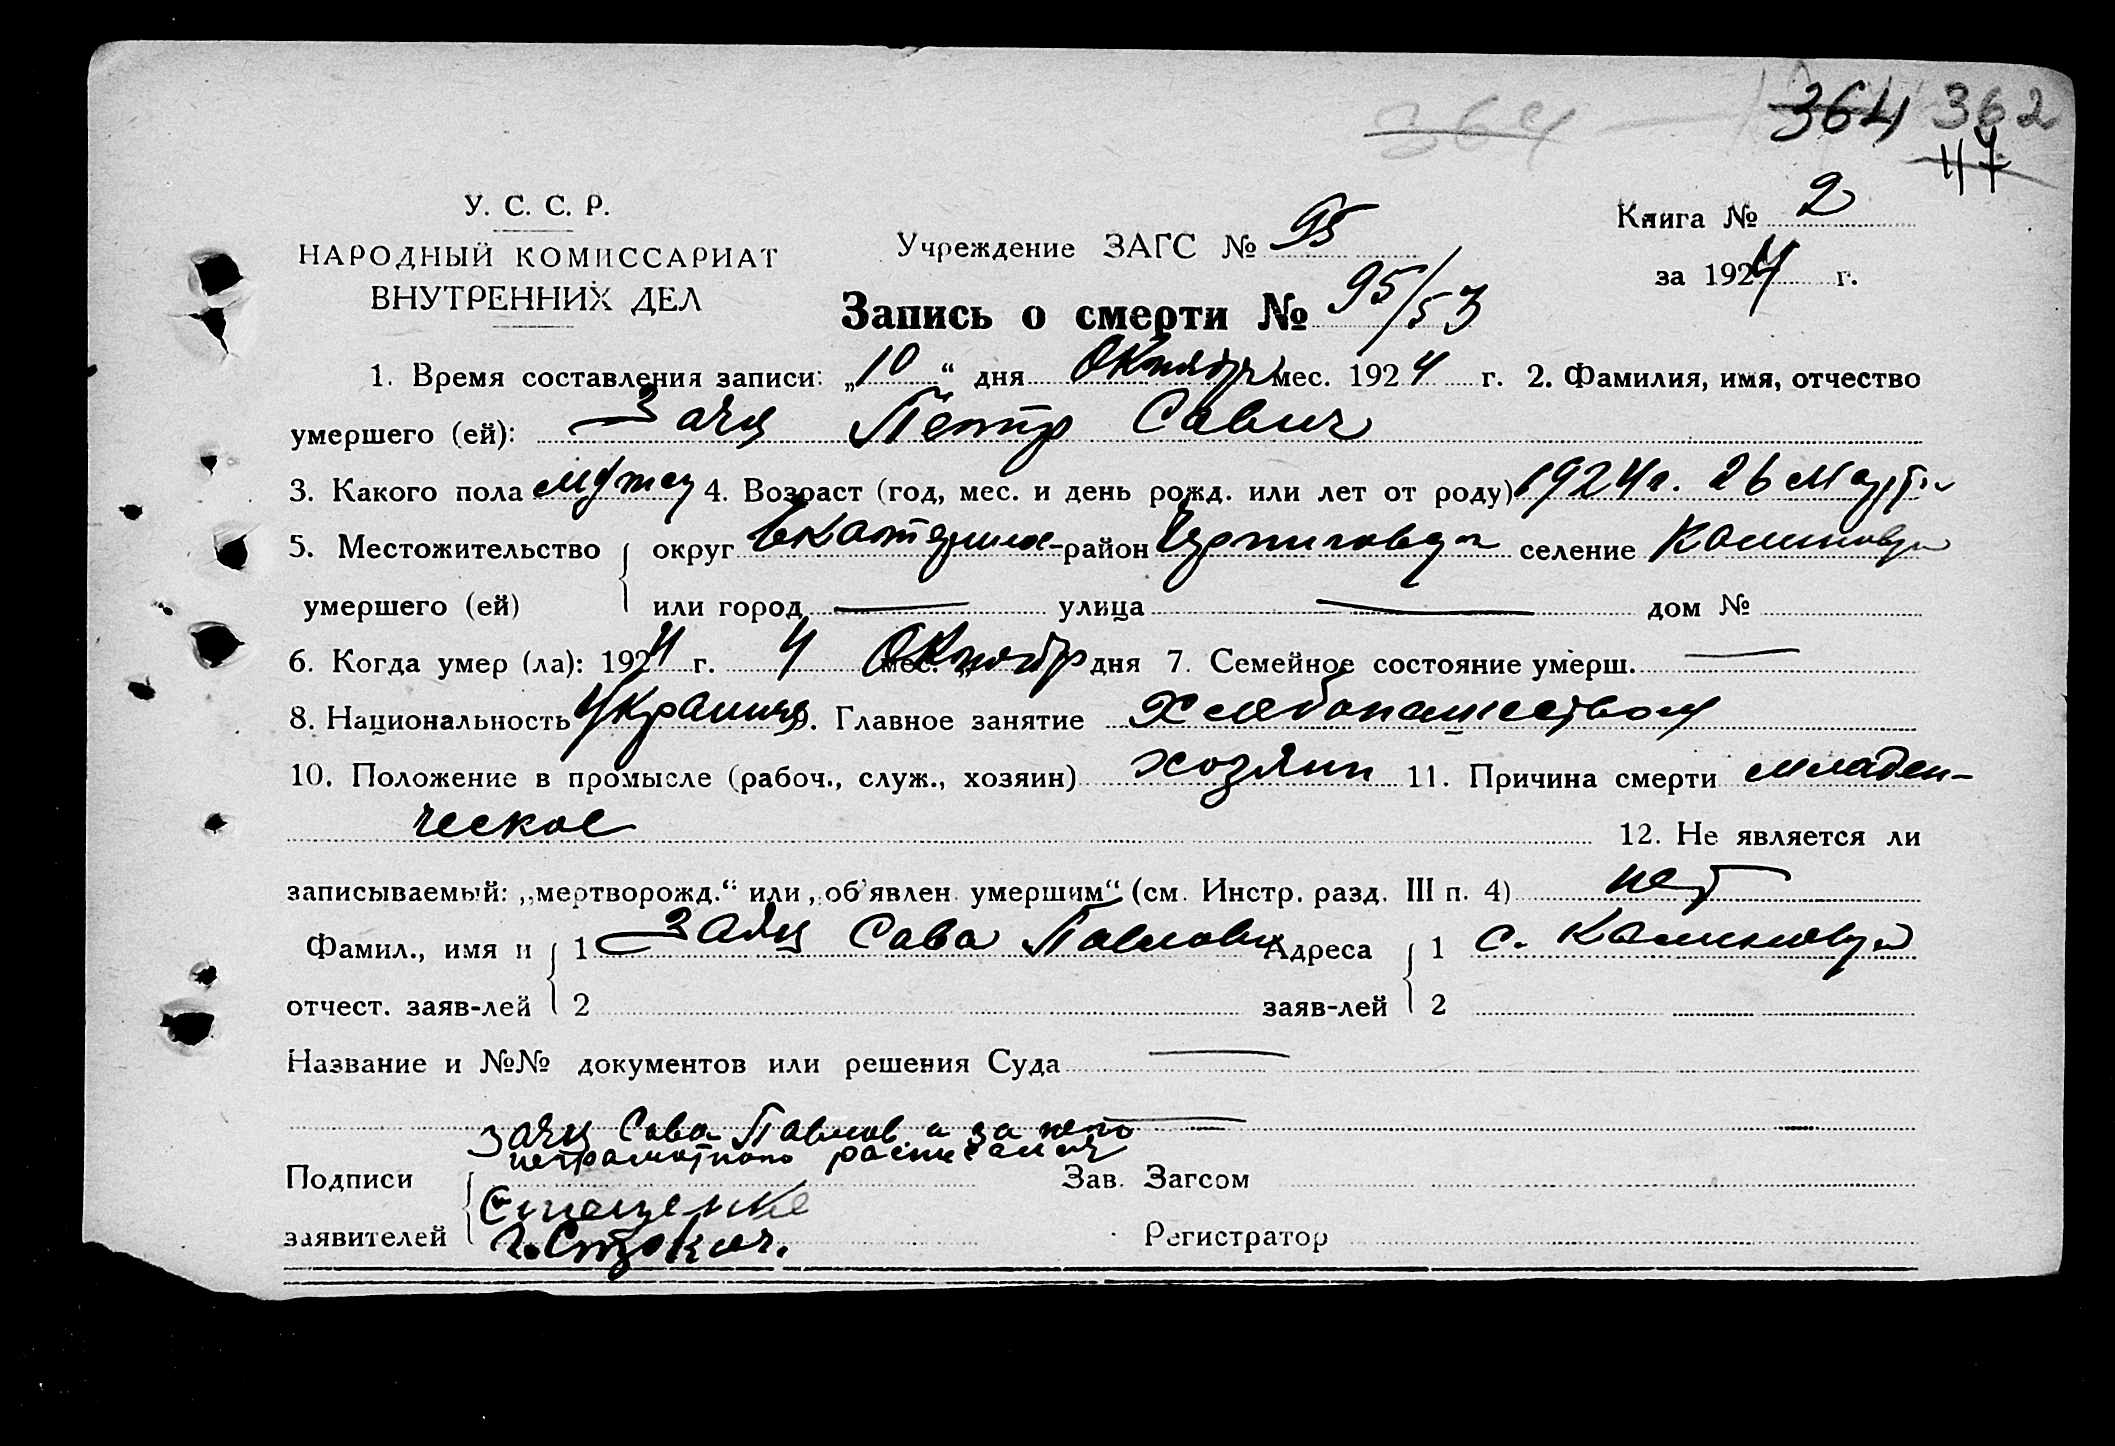 364 364 362
117
У. С. С. Р.
НАРОДНЫЙ КОМИССАРИАТ
ВНУТРЕННИХ ДЕЛ
Учреждение ЗАГС № 95
Книга № 2
за 1924 г.
Запись о смерти № 95/53
1. Время составления записи: „10“ дня Октябр мес. 1924 г. 2. Фамилия, имя, отчество
умершего (ей): Заяц Петр Савич
3. Какого пола мужск 4. Возраст (год, мес. и день рожд. или лет от роду) 1924 г. 26 Март
5. Местожительство округ Екатерин район селение Калиновка
умершего (ей) или город — улица — дом №
6. Когда умер (ла): 1924 г. 4 мес. „Октябр дня 7. Семейное состояние умерш. —
8. Национальность Украинец 9. Главное занятие Хлебопашеством
10. Положение в промысле (рабоч., служ., хозяин) хозяин 11. Причина смерти младен-
ческое 12. Не является ли
записываемый: „мертворожд.“ или „об'явлен умершим“ (см. Инстр. разд. III п. 4) нет
Фамил., имя и 1 Заяц Сава Павлович Адреса 1 с. Калиновка
отчест. заяв-лей 2 заяв-лей 2
Название и №№ документов или решения Суда —
Заяц Сава Павлов. а за него
неграмотного расписался
Подписи Зав. Загсом
заявителей Регистратор